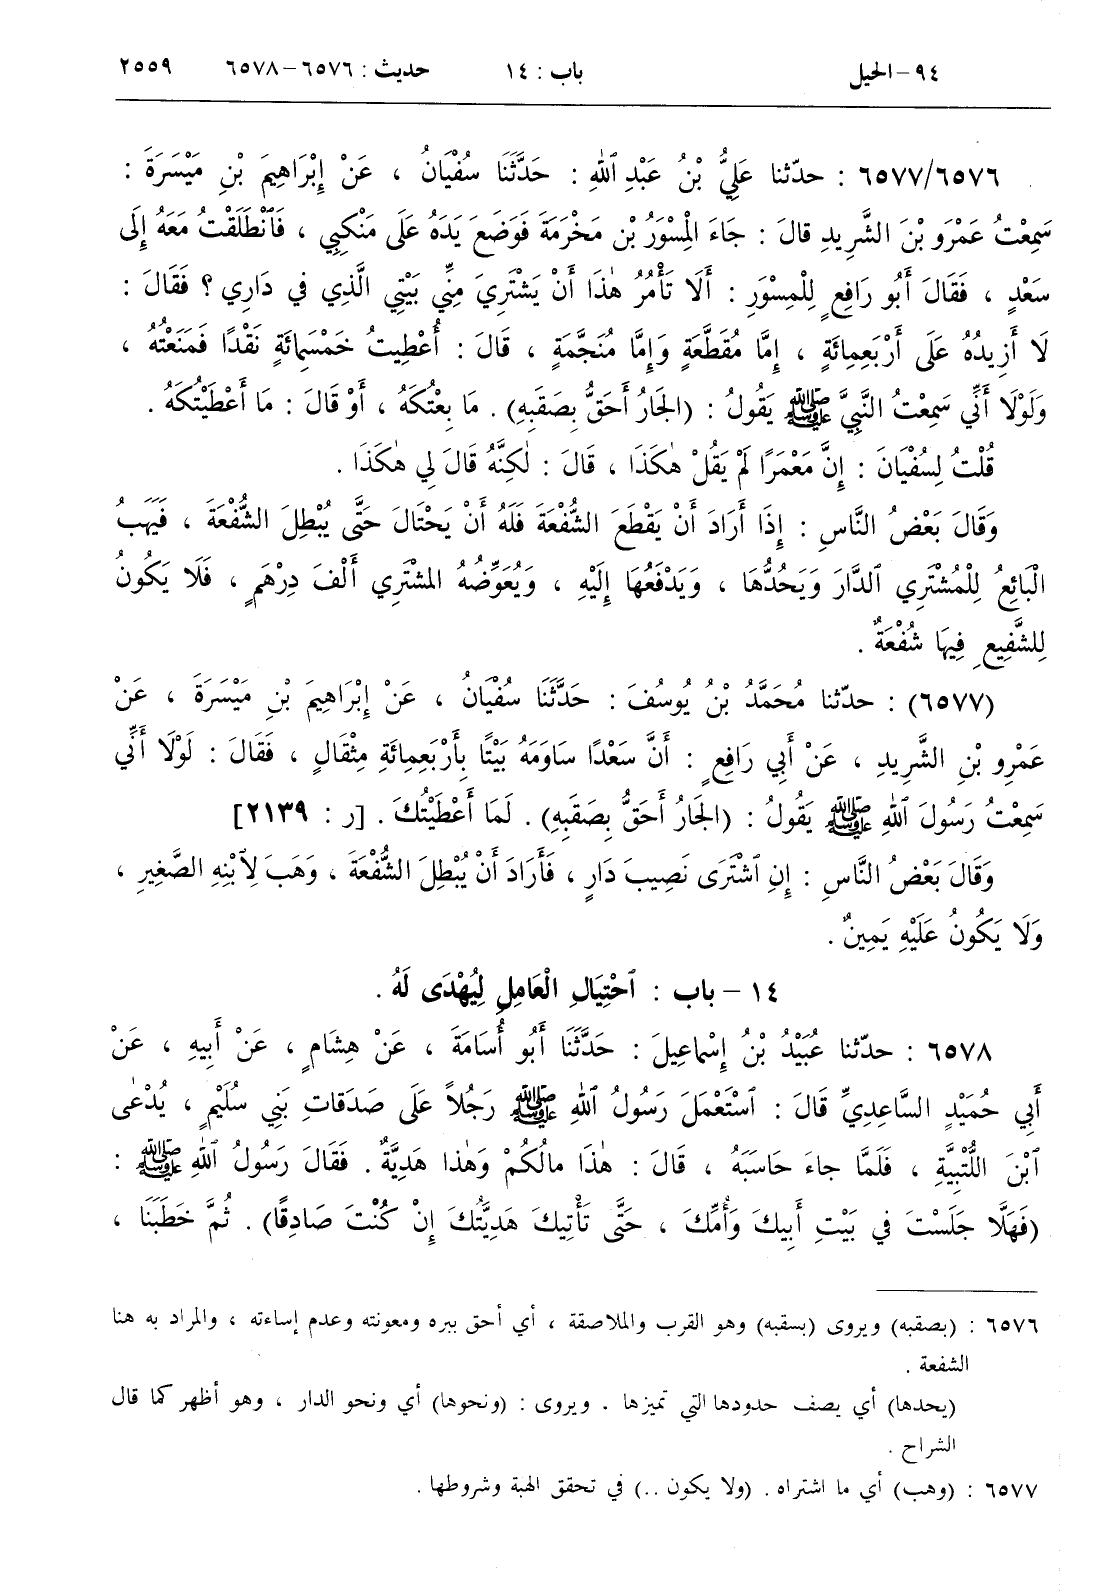 ٩٤ - الحيل باب : ١٤ حديث : ٦٥٧٦ - ٦٥٧٨ ٢٥٥٩
٦٥٧٦/٦٥٧٧ : حدّثنا عَلِيُّ بْنُ عَبْدِ ٱللهِ : حَدَّثَنَا سُفْيَانُ ، عَنْ إِبْرَاهِيمَ بْنِ مَيْسَرَةَ :
سَمِعْتُ عَمْرَو بْنَ الشَّرِيدِ قالَ : جَاءَ الْمِسْوَرُ بْن مَخْرَمَةَ فَوَضَعَ يَدَهُ عَلَى مَنْكِبِي ، فَٱنْطَلَقْتُ مَعَهُ إِلَى
سَعْدٍ ، فَقَالَ أَبُو رَافِعٍ لِلْمِسْوَرِ : أَلَا تَأْمُرُ هٰذَا أَنْ يَشْتَرِيَ مِنِّي بَيْتِي الَّذِي في دَارِي ؟ فَقَالَ :
لَا أَزِيدُهُ عَلَى أَرْبَعِمِائَةٍ ، إِمَّا مُقَطَّعَةٍ وَإِمَّا مُنَجَّمَةٍ ، قَالَ : أُعْطِيتُ خَمْسَمِائَةٍ نَقْدًا فَمَنَعْتُهُ ،
وَلَوْلَا أَنِّي سَمِعْتُ النَّبِيَّ ﷺ يَقُولُ : (الجَارُ أَحَقُّ بِصَقَبِهِ) . مَا بِعْتُكَهُ ، أَوْ قَالَ : مَا أَعْطَيْتُكَهُ .
قُلْتُ لِسُفْيَانَ : إِنَّ مَعْمَرًا لَمْ يَقُلْ هٰكَذَا ، قَالَ : لٰكِنَّهُ قَالَ لِي هٰكَذَا .
وَقَالَ بَعْضُ النَّاسِ : إِذَا أَرَادَ أَنْ يَقْطَعَ الشُّفْعَةَ فَلَهُ أَنْ يَحْتَالَ حَتَّى يُبْطِلَ الشُّفْعَةَ ، فَيَهَبُ
الْبَائِعُ لِلْمُشْتَرِي ٱلدَّارَ وَيَحُدُّهَا ، وَيَدْفَعُهَا إِلَيْهِ ، وَيُعَوِّضُهُ المشْتَرِي أَلْفَ دِرْهَمٍ ، فَلَا يَكُونُ
لِلشَّفِيعِ فِيهَا شُفْعَةٌ .
(٦٥٧٧) : حدّثنا مُحَمَّدُ بْنُ يُوسُفَ : حَدَّثَنَا سُفْيَانُ ، عَنْ إِبْرَاهِيمَ بْنِ مَيْسَرَةَ ، عَنْ
عَمْرِو بْنِ الشَّرِيدِ ، عَنْ أَبِي رَافِعٍ : أَنَّ سَعْدًا سَاوَمَهُ بَيْتًا بِأَرْبَعِمِائَةِ مِثْقَالٍ ، فَقَالَ : لَوْلَا أَنِّي
سَمِعْتُ رَسُولَ ٱللهِ ﷺ يَقُولُ : (الجَارُ أَحَقُّ بِصَقَبِهِ) . لَمَا أَعْطَيْتُكَ . [ر : ٢١٣٩]
وَقَالَ بَعْضُ النَّاسِ : إِنِ ٱشْتَرَى نَصِيبَ دَارٍ ، فَأَرَادَ أَنْ يُبْطِلَ الشُّفْعَةَ ، وَهَبَ لِٱبْنِهِ الصَّغِيرِ ،
وَلَا يَكُونُ عَلَيْهِ يَمِينٌ .
١٤ - باب : ٱحْتِيَالِ الْعَامِلِ لِيُهْدَى لَهُ .
٦٥٧٨ : حدّثنا عُبَيْدُ بْنُ إِسْماعِيلَ : حَدَّثَنَا أَبُو أُسَامَةَ ، عَنْ هِشَامٍ ، عَنْ أَبِيهِ ، عَنْ
أَبِي حُمَيْدٍ السَّاعِدِيِّ قَالَ : ٱسْتَعْمَلَ رَسُولُ ٱللهِ ﷺ رَجُلاً عَلَى صَدَقَاتِ بَنِي سُلَيْمٍ ، يُدْعَى
ٱبْنَ اللُّتْبِيَّةِ ، فَلَمَّا جاءَ حَاسَبَهُ ، قَالَ : هٰذَا مالُكُمْ وَهٰذا هَدِيَّةٌ . فَقَالَ رَسُولُ ٱللهِ ﷺ :
(فَهَلَّا جَلَسْتَ في بَيْتِ أَبِيكَ وَأُمِّكَ ، حَتَّى تَأْتِيكَ هَدِيَّتُكَ إِنْ كُنْتَ صَادِقًا) . ثُمَّ خَطَبَنَا ،
٦٥٧٦ : (بصقبه) ويروى (بسقبه) وهو القرب والملاصقة ، أي أحق ببره ومعونته وعدم إساءته ، والمراد به هنا
الشفعة .
(يحدها) أي يصف حدودها التي تميزها . ويروى : (ونحوها) أي ونحو الدار ، وهو أظهر كما قال
الشراح .
٦٥٧٧ : (وهب) أي ما اشتراه . (ولا يكون ..) في تحقق الهبة وشروطها .